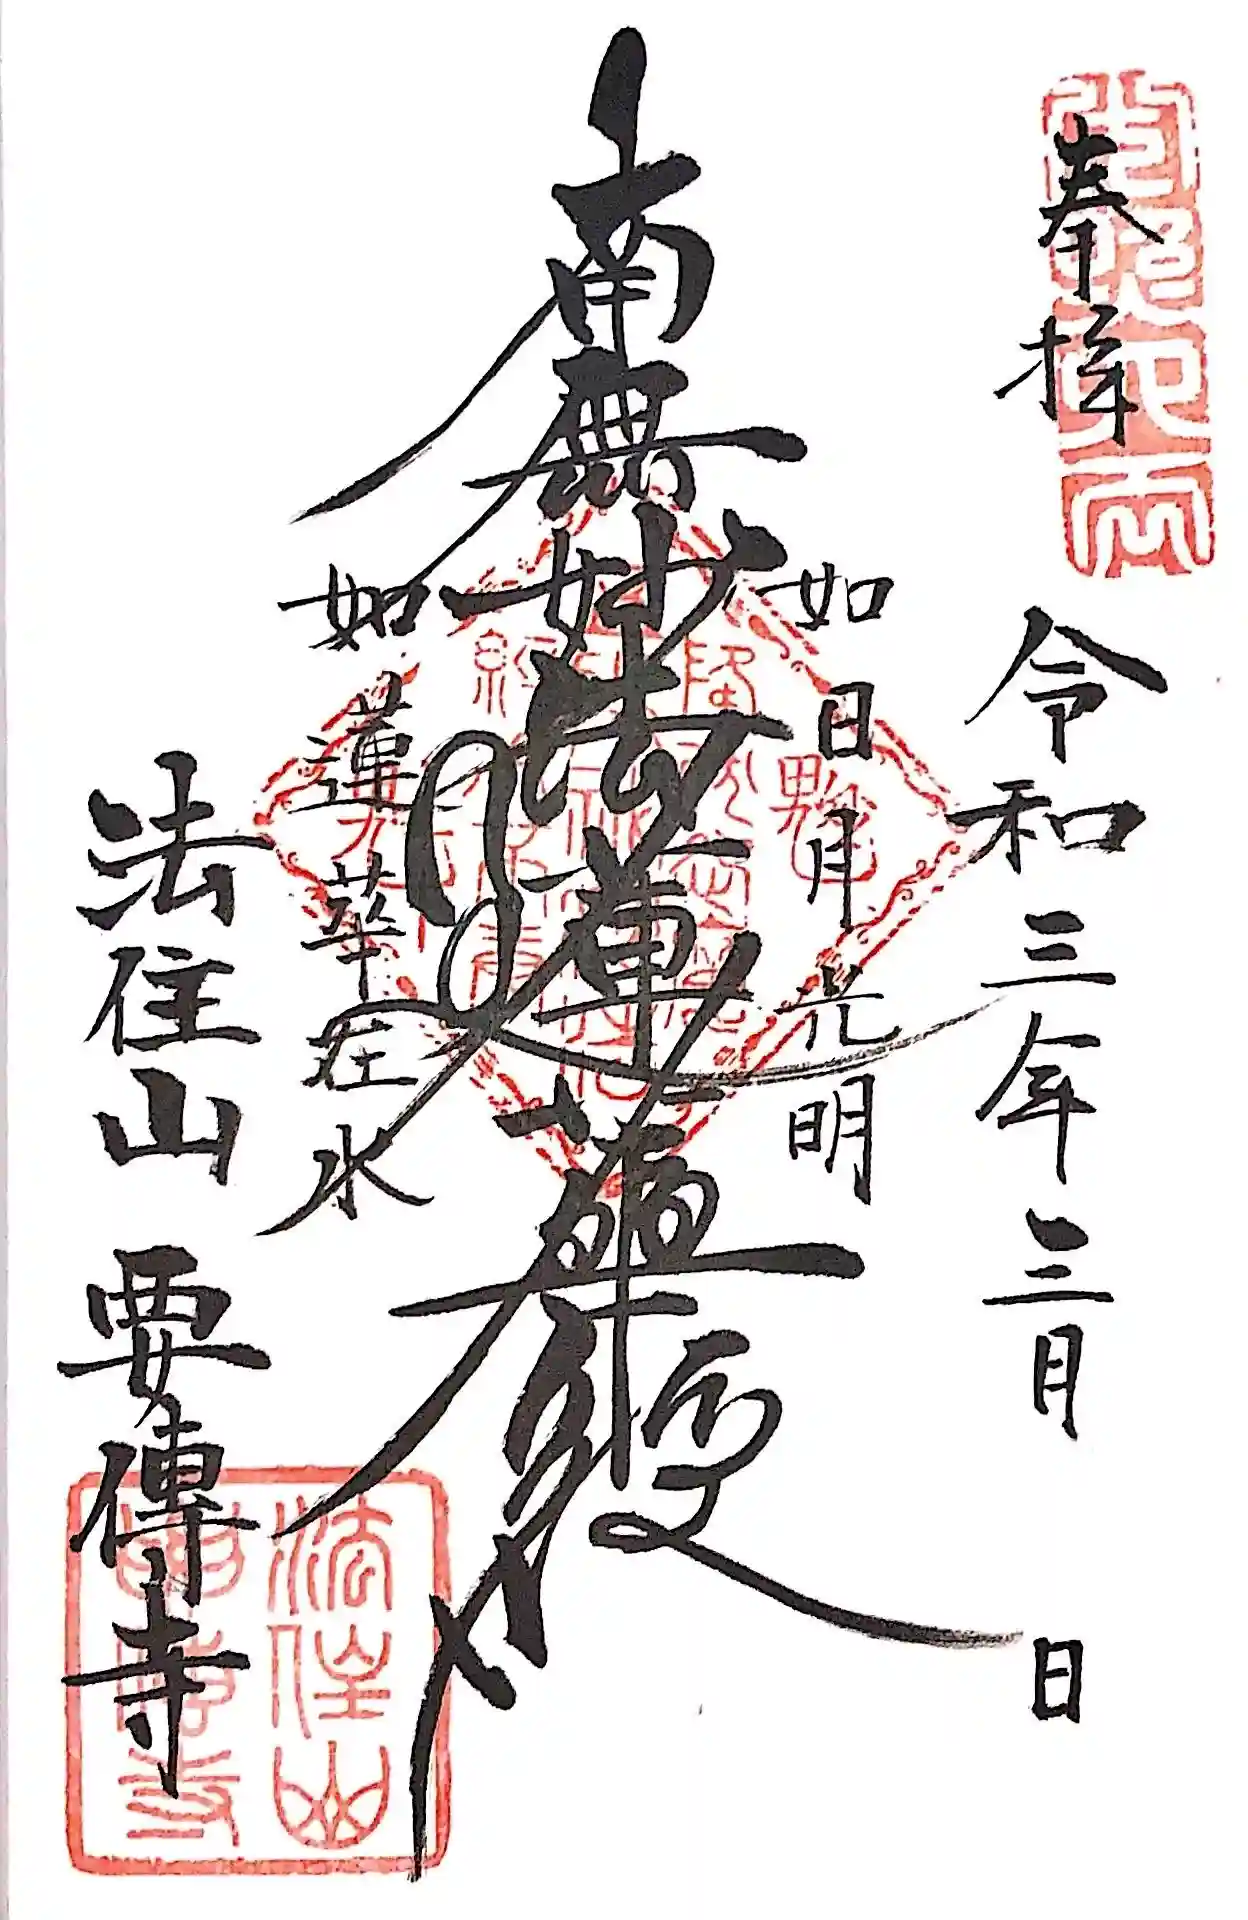 奉拝
令和三年三月 日
如日月光明
南無妙法蓮華経
如蓮華在水
法住山 要傳寺
法住山
要傳寺